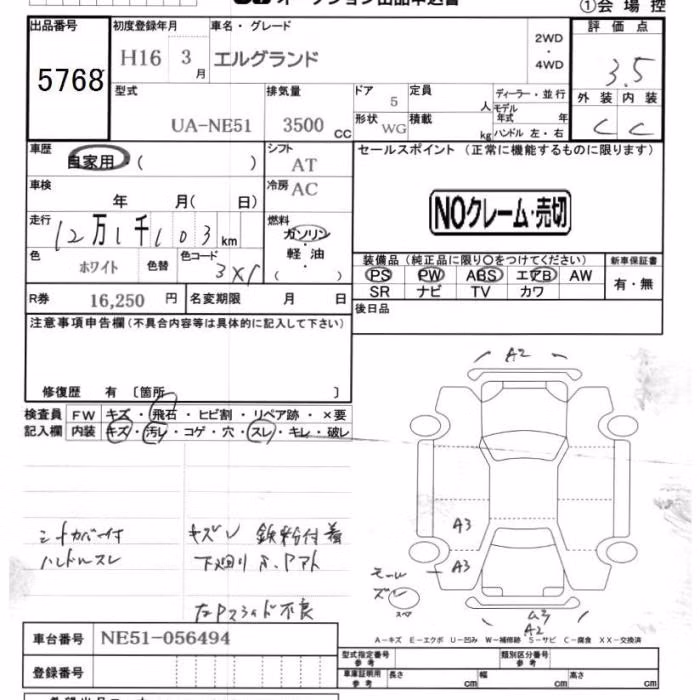 ①会場控
出品番号 初度登録年月 車名・グレード 評価点
5768 H16 3月 エルグランド 2WD・4WD 3.5
型式 排気量 ドア 定員 ディーラー・並行 外装 内装
UA-NE51 3500cc 5 人 モデル年式 年 C C
形状 WG 積載 kg ハンドル 左・右
車歴 シフト セールスポイント (正常に機能するものに限ります)
自家用 ( ) AT
車検 冷房 AC
年 月( 日)
NOクレーム・売切
走行 燃料
12万1千103km ガソリン・軽油 ( )
色 色替 色コード
ホワイト 3X1
装備品 (純正品に限り○をつけてください) 新車保証書
PS PW ABS エアB AW 有・無
SR ナビ TV カワ
R券 16,250円 名変期限 月 日
後日品
注意事項申告欄(不具合内容等は具体的に記入して下さい)
修復歴 有 〔箇所 〕
検査員 FW キズ・飛石・ヒビ割・リペア跡・×要
記入欄 内装 キズ・汚レ・コゲ・穴・スレ・キレ・破レ
A2
A3
A3
A3
A2
シートカバー付 キズ 鉄粉付着
ハンドルスレ 下廻り
不良
モール
ズレ
スペア
車台番号 NE51-056494
A-キズ E-エクボ U-凹み W-補修跡 S-サビ C-腐食 XX-交換済
登録番号
型式指定番号 参考 類別区分番号 参考
車庫証明用 参考 長さ cm 幅 cm 高さ cm